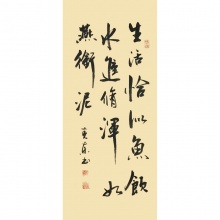 生活恰似魚飲
水進脩渾如
燕銜泥